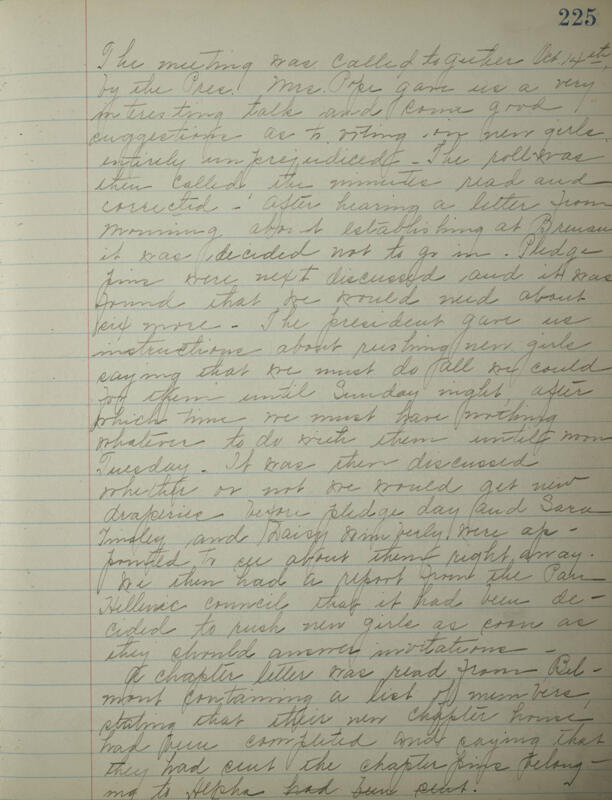 225
The meeting was called together Oct 14th
by the Pres. Mrs. Pope gave us a very
interesting talk and some good
suggestions as to voting on new girls
entirely unprejudiced - The roll was
then called the minutes read and
corrected - After hearing a letter from
about establishing at Brenau
it was decided not to go in. Pledge
pins were next discussed and it was
found that we would need about
six more - The president gave us
instructions about rushing new girls
saying that we must do all we could
for them until Sunday night, after
which time we must have nothing
whatever to do with them until noon
Tuesday - It was then discussed
whether or not we would get new
draperies before pledge day and Sara
Tinsley and Daisy Wimberly were ap-
pointed to see about them right away.
We then had a report from the Pan
Hellenic council that it had been de-
cided to rush new girls as soon as
they should answer invitations -
A chapter letter was read from Bel-
mont containing a list of members,
stating that their new chapter house
had been completed and saying that
they had sent the chapter pins belong-
ing to Alpha had been sent.